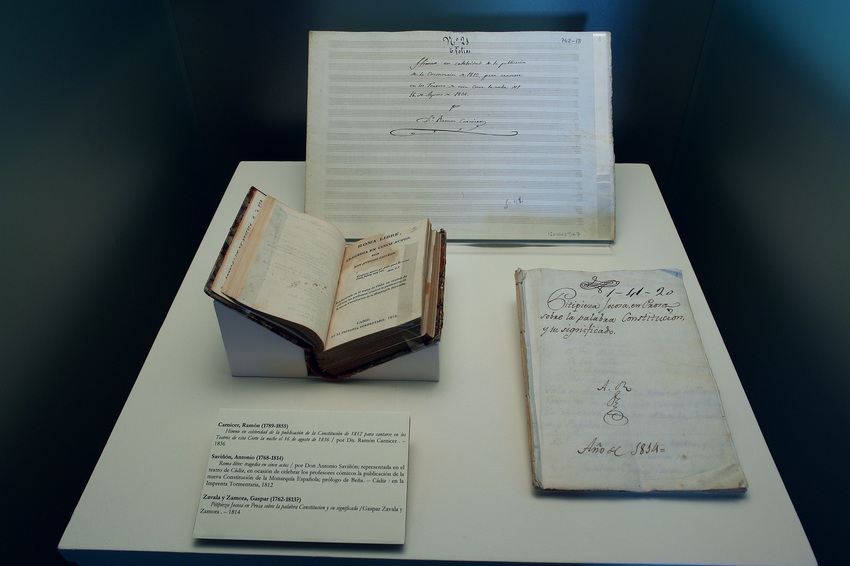 Nº 21
742-17
Himno en celebridad de la publicación
de la Constitución de 1812, para cantarse
en los Teatros de esta Corte la noche del
16 de Agosto de 1836.
Dn. Ramon Carnicer
ROMA LIBRE,
TRAGEDIA EN CINCO ACTOS,
POR
CADIZ:
EN LA IMPRENTA TORMENTARIA, 1812.
1-41-20
Pitipieza Jocosa, en Prosa
sobre la palabra Constitucion,
y su significado.
Año de 1814=
Carnicer, Ramón (1789-1855)
Himno en celebridad de la publicación de la Constitución de 1812 para cantarse en los
Teatros de esta Corte la noche el 16 de agosto de 1836 / por Dn. Ramón Carnicer . –
1836
Saviñón, Antonio (1768-1814)
Roma libre: tragedia en cinco actos / por Don Antonio Saviñón; representada en el
teatro de Cádiz, en ocasión de celebrar los profesores cómicos la publicación de la
nueva Constitución de la Monarquía Española; prólogo de Beña. – Cádiz : en la
Imprenta Tormentaria, 1812
Zavala y Zamora, Gaspar (1762-1813?)
Pitipieza Jocosa en Prosa sobre la palabra Constitucion y su significado /Gaspar Zavala y
Zamora . – 1814